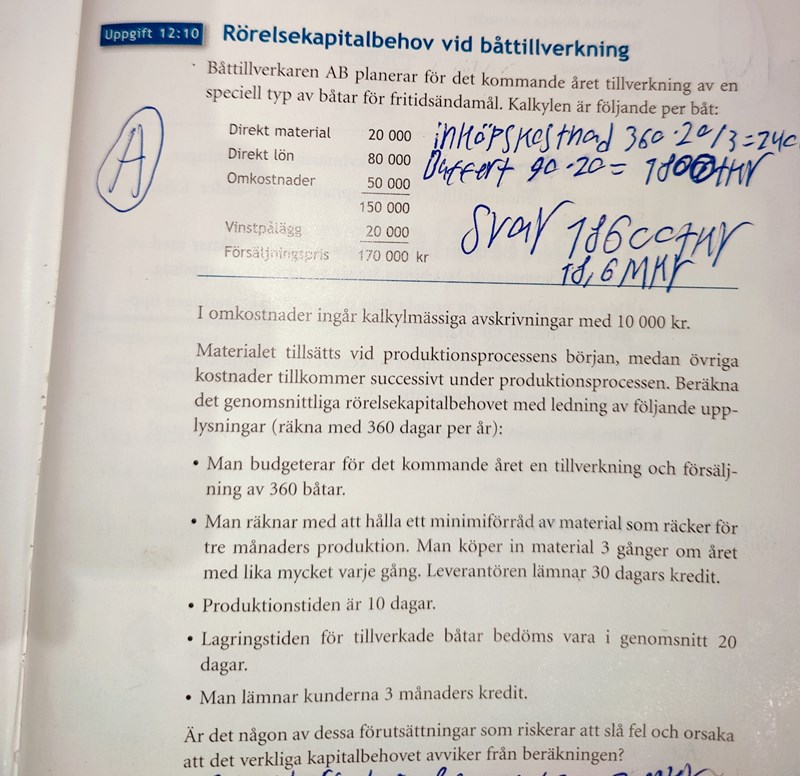 Uppgift 12:10 Rörelsekapitalbehov vid båttillverkning
Båttillverkaren AB planerar för det kommande året tillverkning av en
speciell typ av båtar för fritidsändamål. Kalkylen är följande per båt:
A
Direkt material 20 000 inköpskostnad 360·20/3=240
Direkt lön 80 000 Buffert 90·20= 1800tkr
Omkostnader 50 000
150 000
Vinstpålägg 20 000
Försäljningspris 170 000 kr
Svar 18600tkr
18,6 Mkr
I omkostnader ingår kalkylmässiga avskrivningar med 10 000 kr.
Materialet tillsätts vid produktionsprocessens början, medan övriga
kostnader tillkommer successivt under produktionsprocessen. Beräkna
det genomsnittliga rörelsekapitalbehovet med ledning av följande upp-
lysningar (räkna med 360 dagar per år):
• Man budgeterar för det kommande året en tillverkning och försälj-
ning av 360 båtar.
• Man räknar med att hålla ett minimiförråd av material som räcker för
tre månaders produktion. Man köper in material 3 gånger om året
med lika mycket varje gång. Leverantören lämnar 30 dagars kredit.
• Produktionstiden är 10 dagar.
• Lagringstiden för tillverkade båtar bedöms vara i genomsnitt 20
dagar.
• Man lämnar kunderna 3 månaders kredit.
Är det någon av dessa förutsättningar som riskerar att slå fel och orsaka
att det verkliga kapitalbehovet avviker från beräkningen?